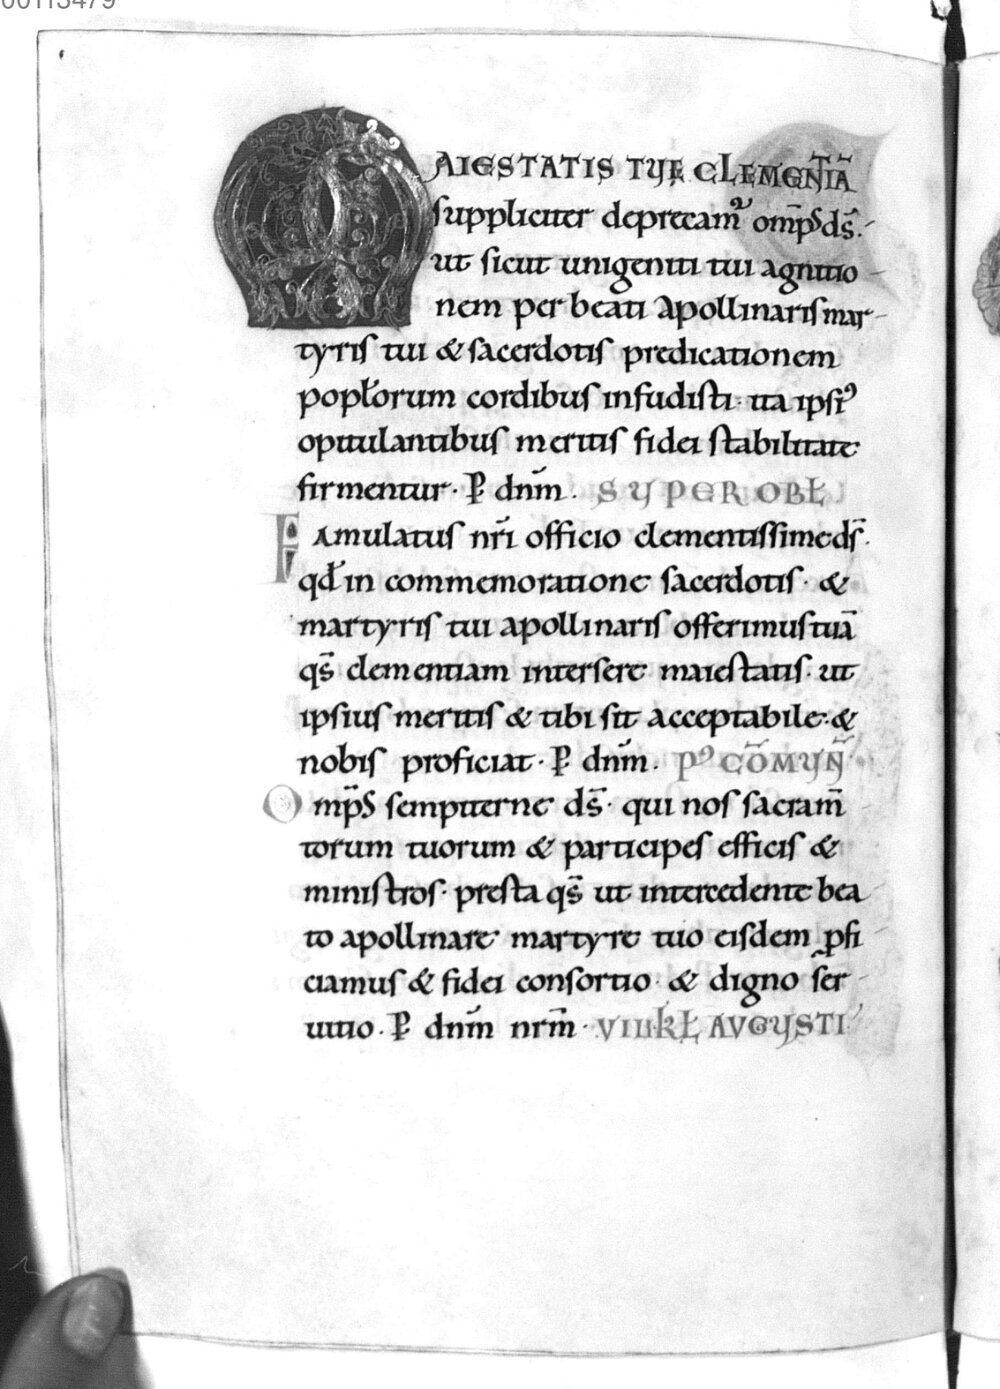 00113479
MAIESTATIS TUE CLEMENT̄IĀ
suppliciter deprecam᷑ om̄ps ds̄.
ut sicut unigeniti tui agnitio
nem per beati Apollinaris mar
tyris tui & sacerdotis predicationem
popłorum cordibus infudisti· ita ipsi᷒
opitulantibus meritis fidei stabilitate
firmentur. P̲ dnm̄. SUPER OBŁ
FAmulatus nr̄i officio clementissime ds̄.
qđ in commemoratione sacerdotis· &
martyris tui apollinaris offerimus tuā
qs̄ clementiam intersere maiestatis· ut
ipsius meritis & tibi sit acceptabile· &
nobis proficiat· P̲ dnm̄. Pꝰ CŌMUÑ
Om̄ps sempiterne ds̄· qui nos sacram̄
torum tuorum & participes efficis &
ministros· presta qs̄ ut intercedente bea
to apollinare martyre tuo eisdem ꝑfi
ciamus & fidei consortio· & digno ser
uitio. P̲ dnm̄ nrm̄· VIIII KŁ AVGUSTI